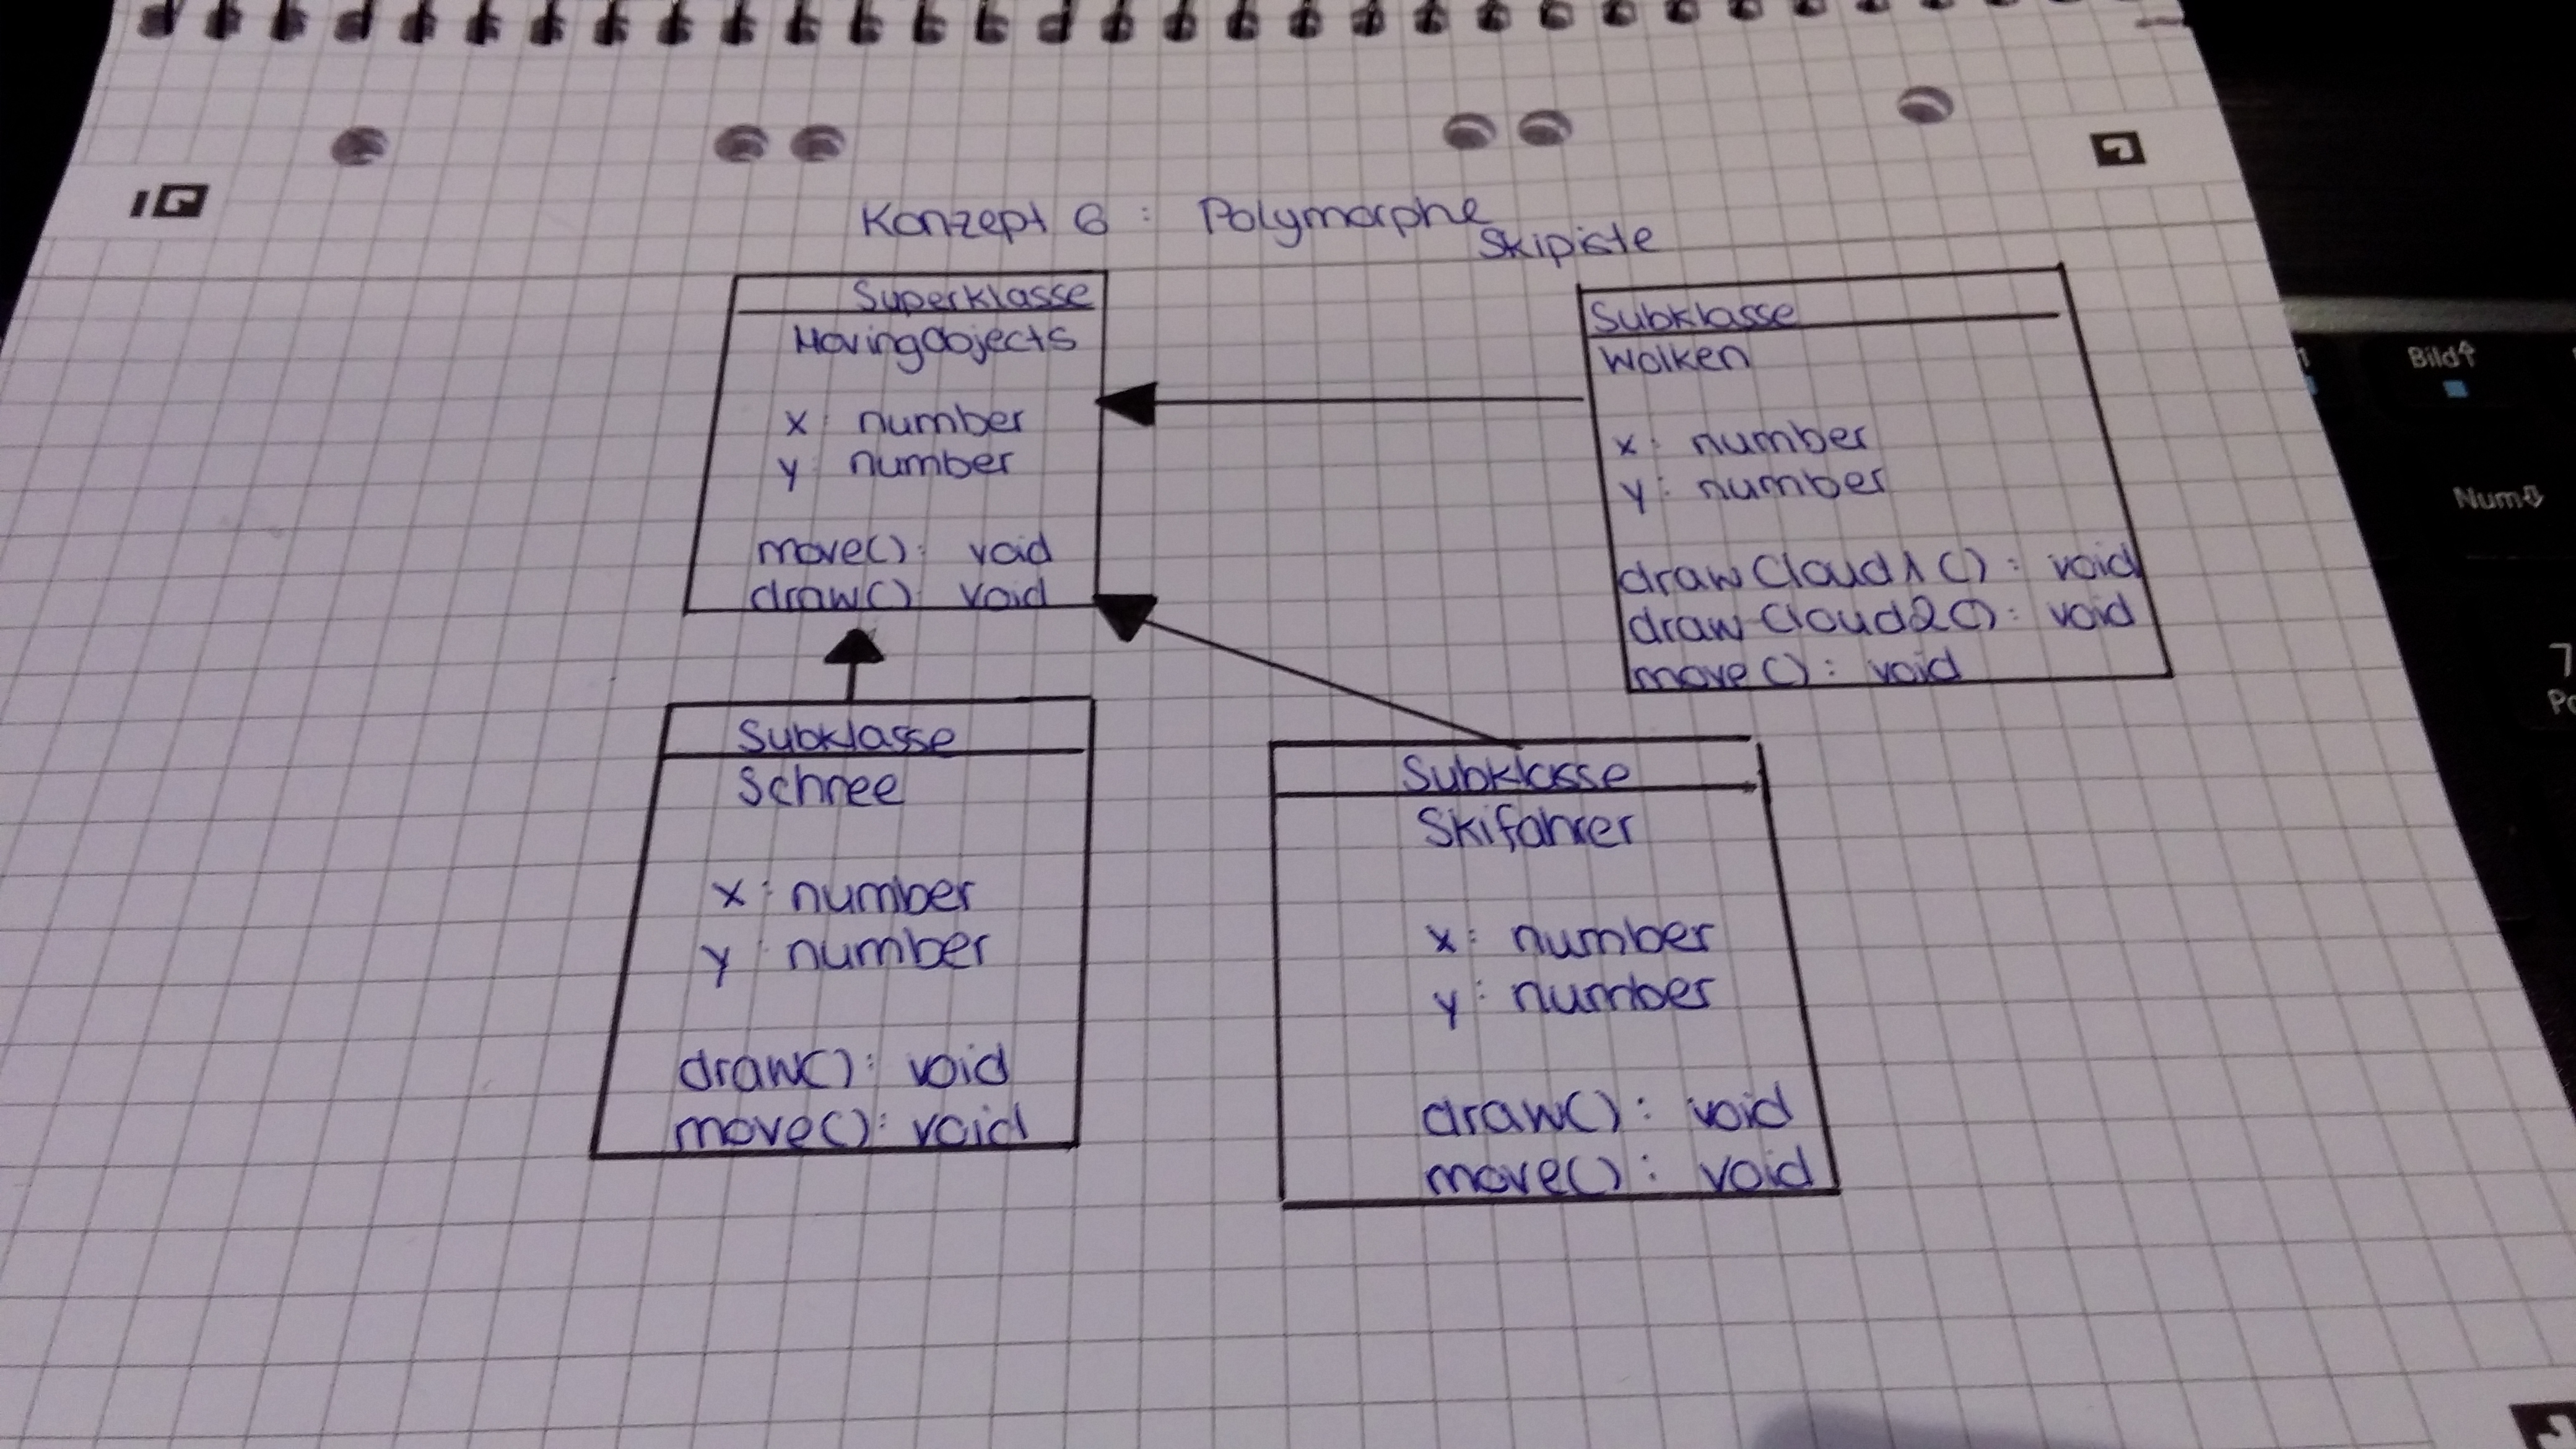 Konzept 6 : Polymorphe
Skipiste
Superklasse
MovingObjects
x : number
y : number
move() : void
draw() void
Subklasse
Wolken
x : number
y : number
drawCloud1() : void
drawCloud2() : void
move() : void
Subklasse
Schnee
x : number
y : number
draw() : void
move() : void
Subklasse
Skifahrer
x : number
y : number
draw() : void
move() : void
Bild↑
Num⇩
7